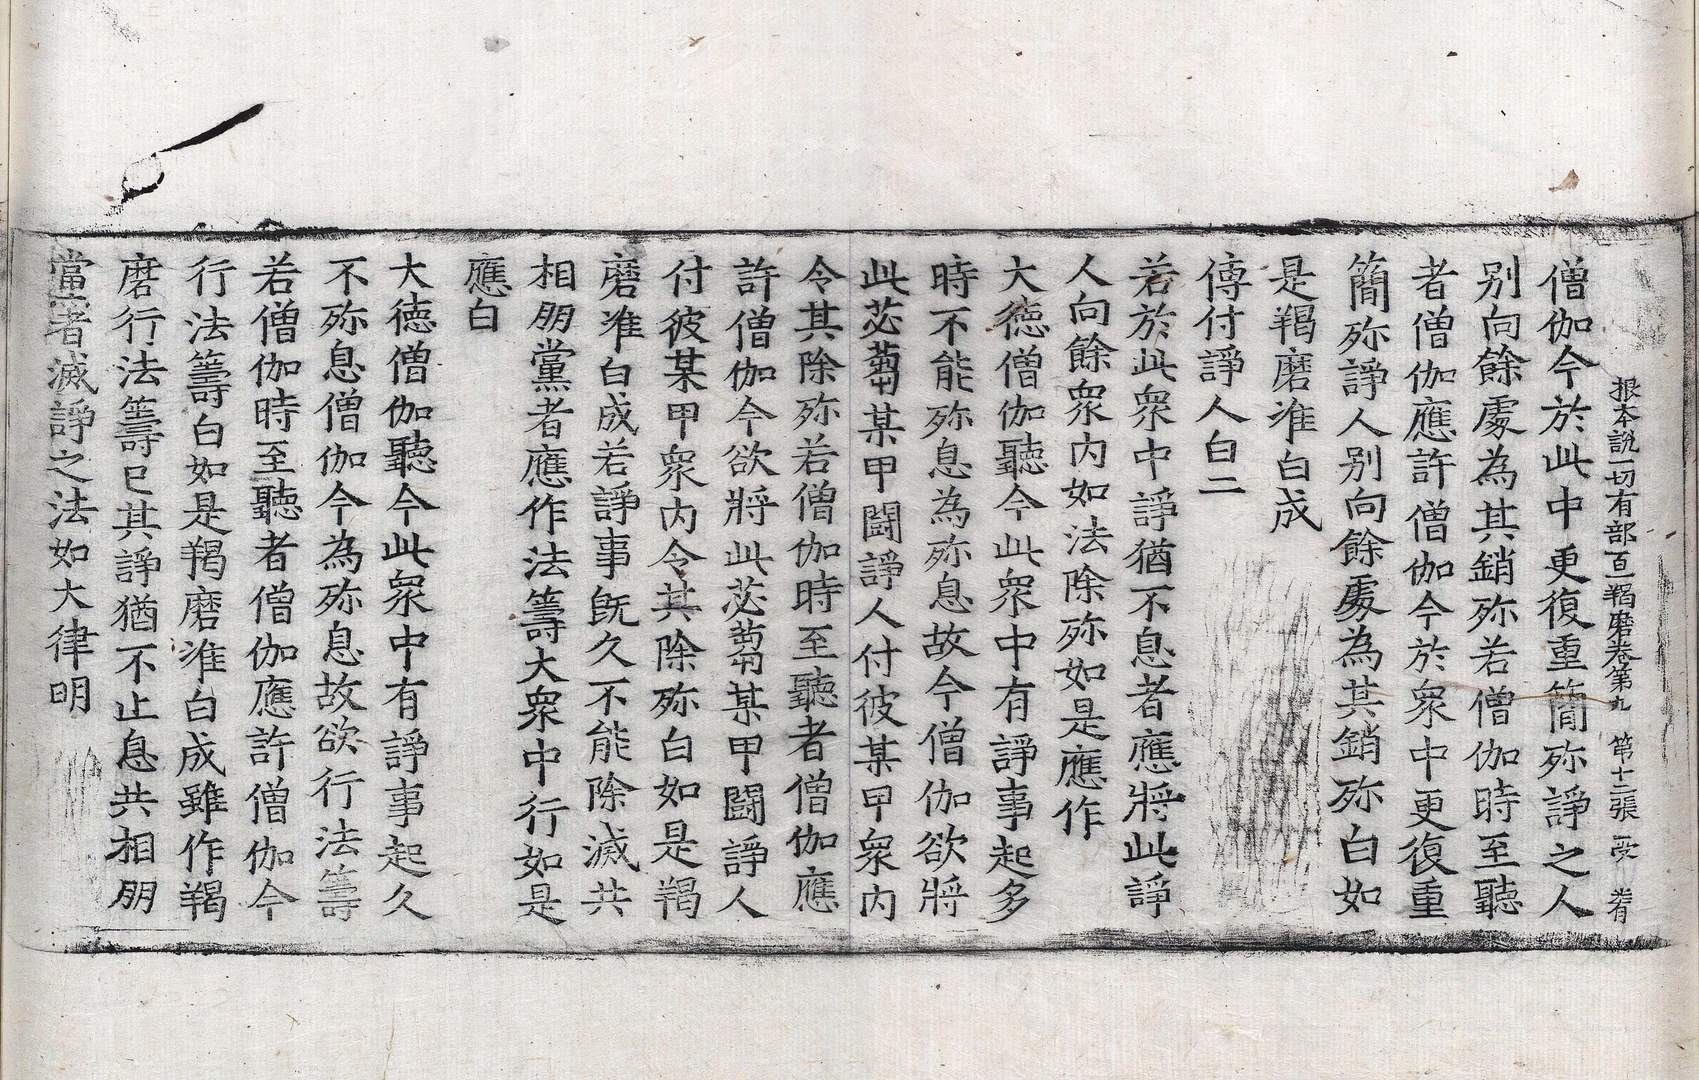 根本說一切有部百一羯磨卷第九　第十二張　受
僧伽今於此中更復重簡殄諍之人
别向餘處為其銷殄若僧伽時至聽
者僧伽應許僧伽今於衆中更復重
簡殄諍人别向餘處為其銷殄白如
是羯磨准白成
傳付諍人白二
若於此衆中諍猶不息者應將此諍
人向餘衆内如法除殄如是應作
大德僧伽聽今此衆中有諍事起多
時不能殄息為殄息故今僧伽欲將
此苾蒭某甲鬪諍人付彼某甲衆内
令其除殄若僧伽時至聽者僧伽應
許僧伽今欲將此苾蒭某甲鬪諍人
付彼某甲衆内令其除殄白如是羯
磨准白成若諍事旣久不能除滅共
相朋黨者應作法籌大衆中行如是
應白
大德僧伽聽今此衆中有諍事起久
不殄息僧伽今為殄息故欲行法籌
若僧伽時至聽者僧伽應許僧伽今
行法籌白如是羯磨准白成雖作羯
磨行法籌已其諍猶不止息共相朋
黨者滅諍之法如大律明